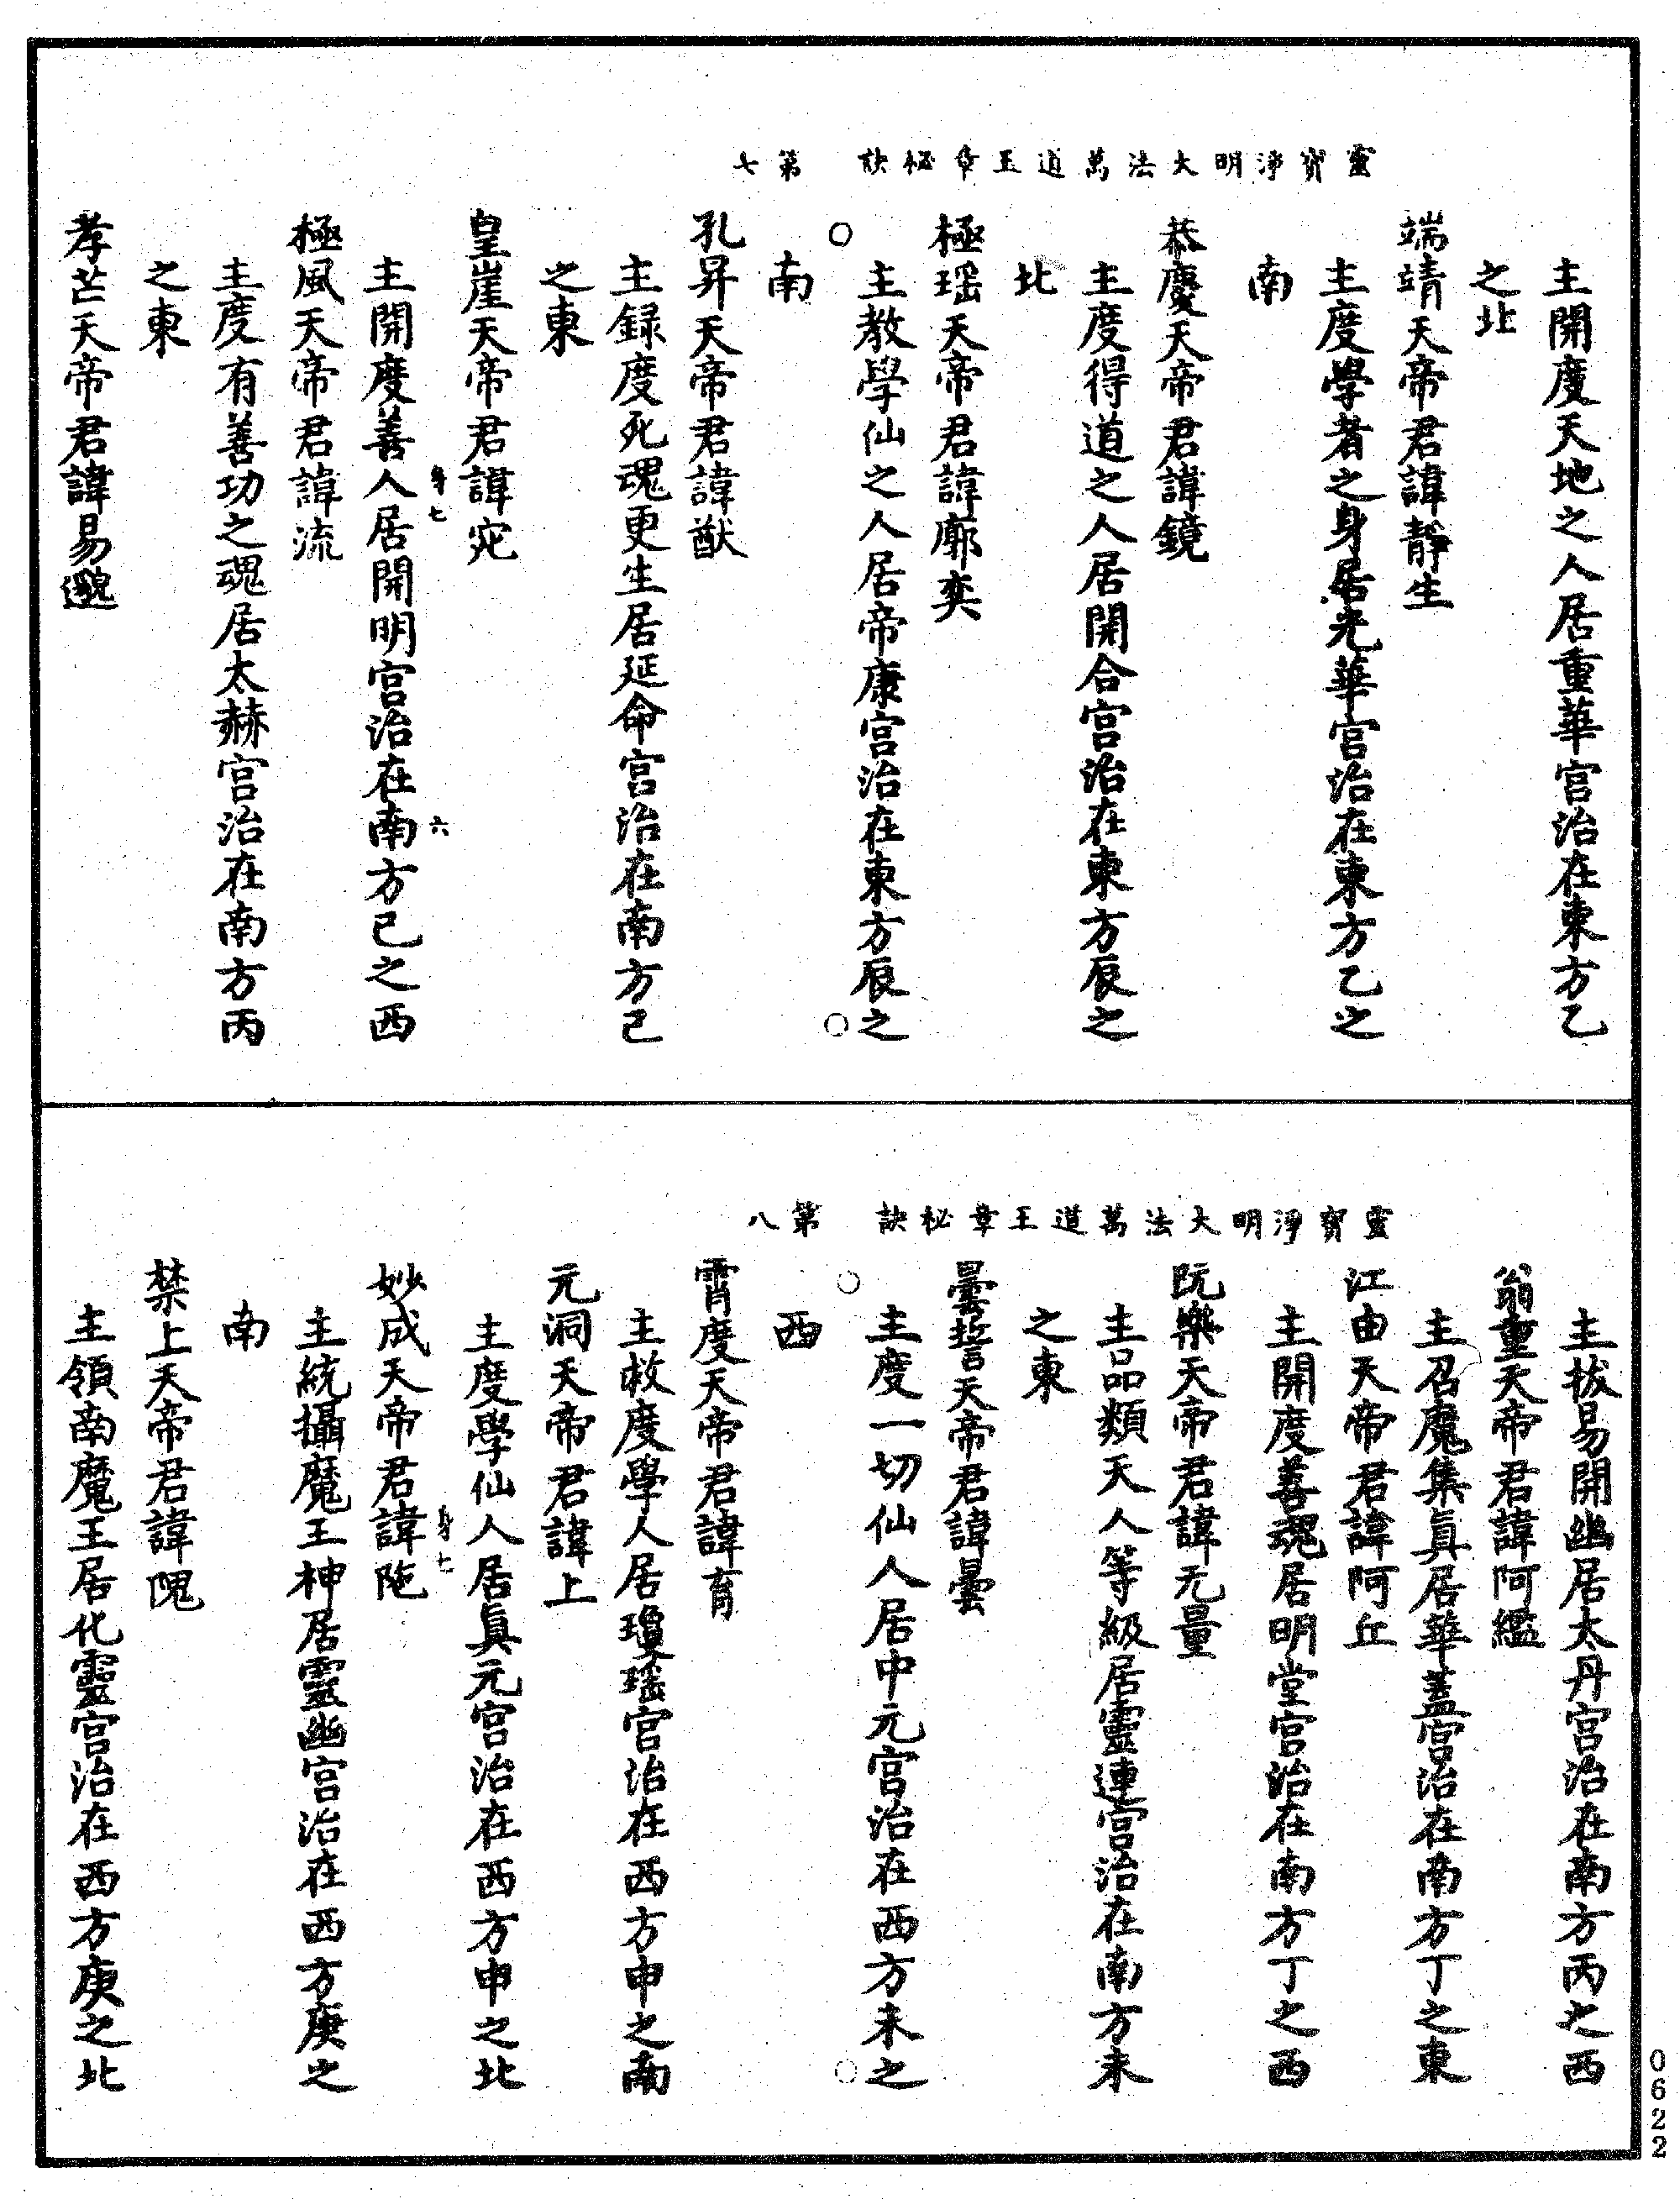 靈寶淨明大法萬道玉章秘訣　第七
主開度天地之人居重華宮治在東方乙
之北
端靖天帝君諱靜生
主度學者之身居光華宮治在東方乙之
南
恭慶天帝君諱鏡
主度得道之人居開合宮治在東方辰之
北
極瑶天帝君諱廓奕
主教學仙之人居帝康宮治在東方辰之
南
孔昇天帝君諱猷
主録度死魂更生居延命宮治在南方己
之東
皇崖天帝君諱㝎
主開度善人居開明宮治在南方己之西
身七
六
極風天帝君諱流
主度有善功之魂居太赫宮治在南方丙
之東
孝芒天帝君諱易邈
靈寶淨明大法萬道王章秘訣　第八
主拔易開幽居太丹宮治在南方丙之西
翁重天帝君諱阿繿
主召魔集眞居華蓋宮治在南方丁之東
江由天帝君諱阿丘
主開度善魂居明堂宮治在南方丁之西
阮樂天帝君諱无量
主品類天人等級居靈連宮治在南方未
之東
曇誓天帝君諱曇
主度一切仙人居中元宮治在西方未之
西
霄度天帝君諱育
主救度學人居瓊瑤宮治在西方申之南
元洞天帝君諱上
主度學仙人居眞元宮治在西方申之北
妙成天帝君諱陁
身七
主統攝魔王神居靈幽宮治在西方庚之
南
禁上天帝君諱隗
主領南魔王居化靈宮治在西方庚之北
0622